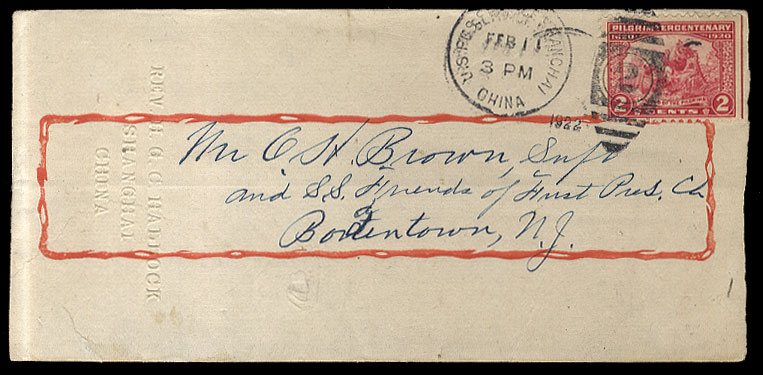 U.S. POSTAL SERVICE SHANGHAI
FEB 11
3 PM
CHINA
1922
PILGRIM TERCENTENARY
1620 1920
2 CENTS 2
REV. H. G. C. HALLOCK
SHANGHAI
CHINA
Mr C H. Brown, Supt
and S.S. Friends of First Pres. Ch
Bordentown, N.J.
1